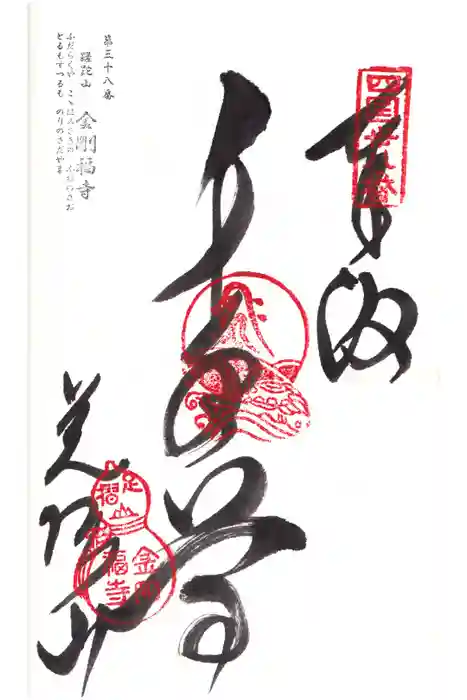 四国卅八番
奉納
足摺山
金剛福寺
第三十八番
蹉跎山 金剛福寺
ふだらくや ここはみさきの ふねのさお
とるもすつるも のりのさだやま